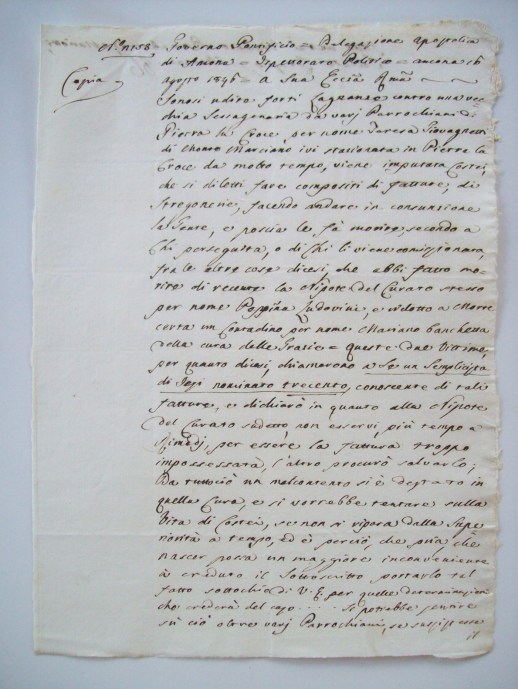 N. 1158 Governo Pontificio = Delegazione Apostolica
di Ancona = Ispettorato Politico = Ancona 16
Copia Agosto 1846 = A Sua Ecc.a R.ma
Sonosi udite forti Lagnanze contro una vec
chia Sessagenaria da varj Parrochiani di
Pietra la Croce, per nome Teresa Giovagnetti
di Monte Marciano ivi stazionata in Pietra la
Croce da molto tempo, viene imputata Costei,
che si diletti fare compositi di fatture, di
Stregonerie, facendo andare in consunzione
la Gente, e poscia le fà morire, secondo a
Chi perseguita, o di Chi li viene comissionata,
fra le altre cose dicesi, che abbi fatto mo
rire di recente la Nipote del Curato stesso
per nome Peppina Ludovini, e ridotto a Morte
certa un Contadino per nome Mariano
della cura delle Grazie = queste due Vittime,
per quanto dicesi, chiamarono a Se un Semplicista
di Jesi nominato trecento, conoscente di tali
fatture, e dichiarò in quanto alla Nipote
del Curato sudetto, non esservi, più tempo a
Rimedj, per essere la fattura troppo
impossessata, l'altro procurò salvarlo;
Da tuttociò un malcontento si è destato in
quella Cura, e si vorrebbe tentare sulla
Vita di Costei, se non si ripara dalla Supe
riorità a tempo, ed è perciò, che pria, che
nascer possa un maggiore inconveniente
à creduto il Sottoscritto portarlo tal
fatto sottochio di V. E. per quelle determinazioni
che crederà del caso .... Si potrebbe sentire
su ciò oltre varj Parrochiani, se sussistesse
il